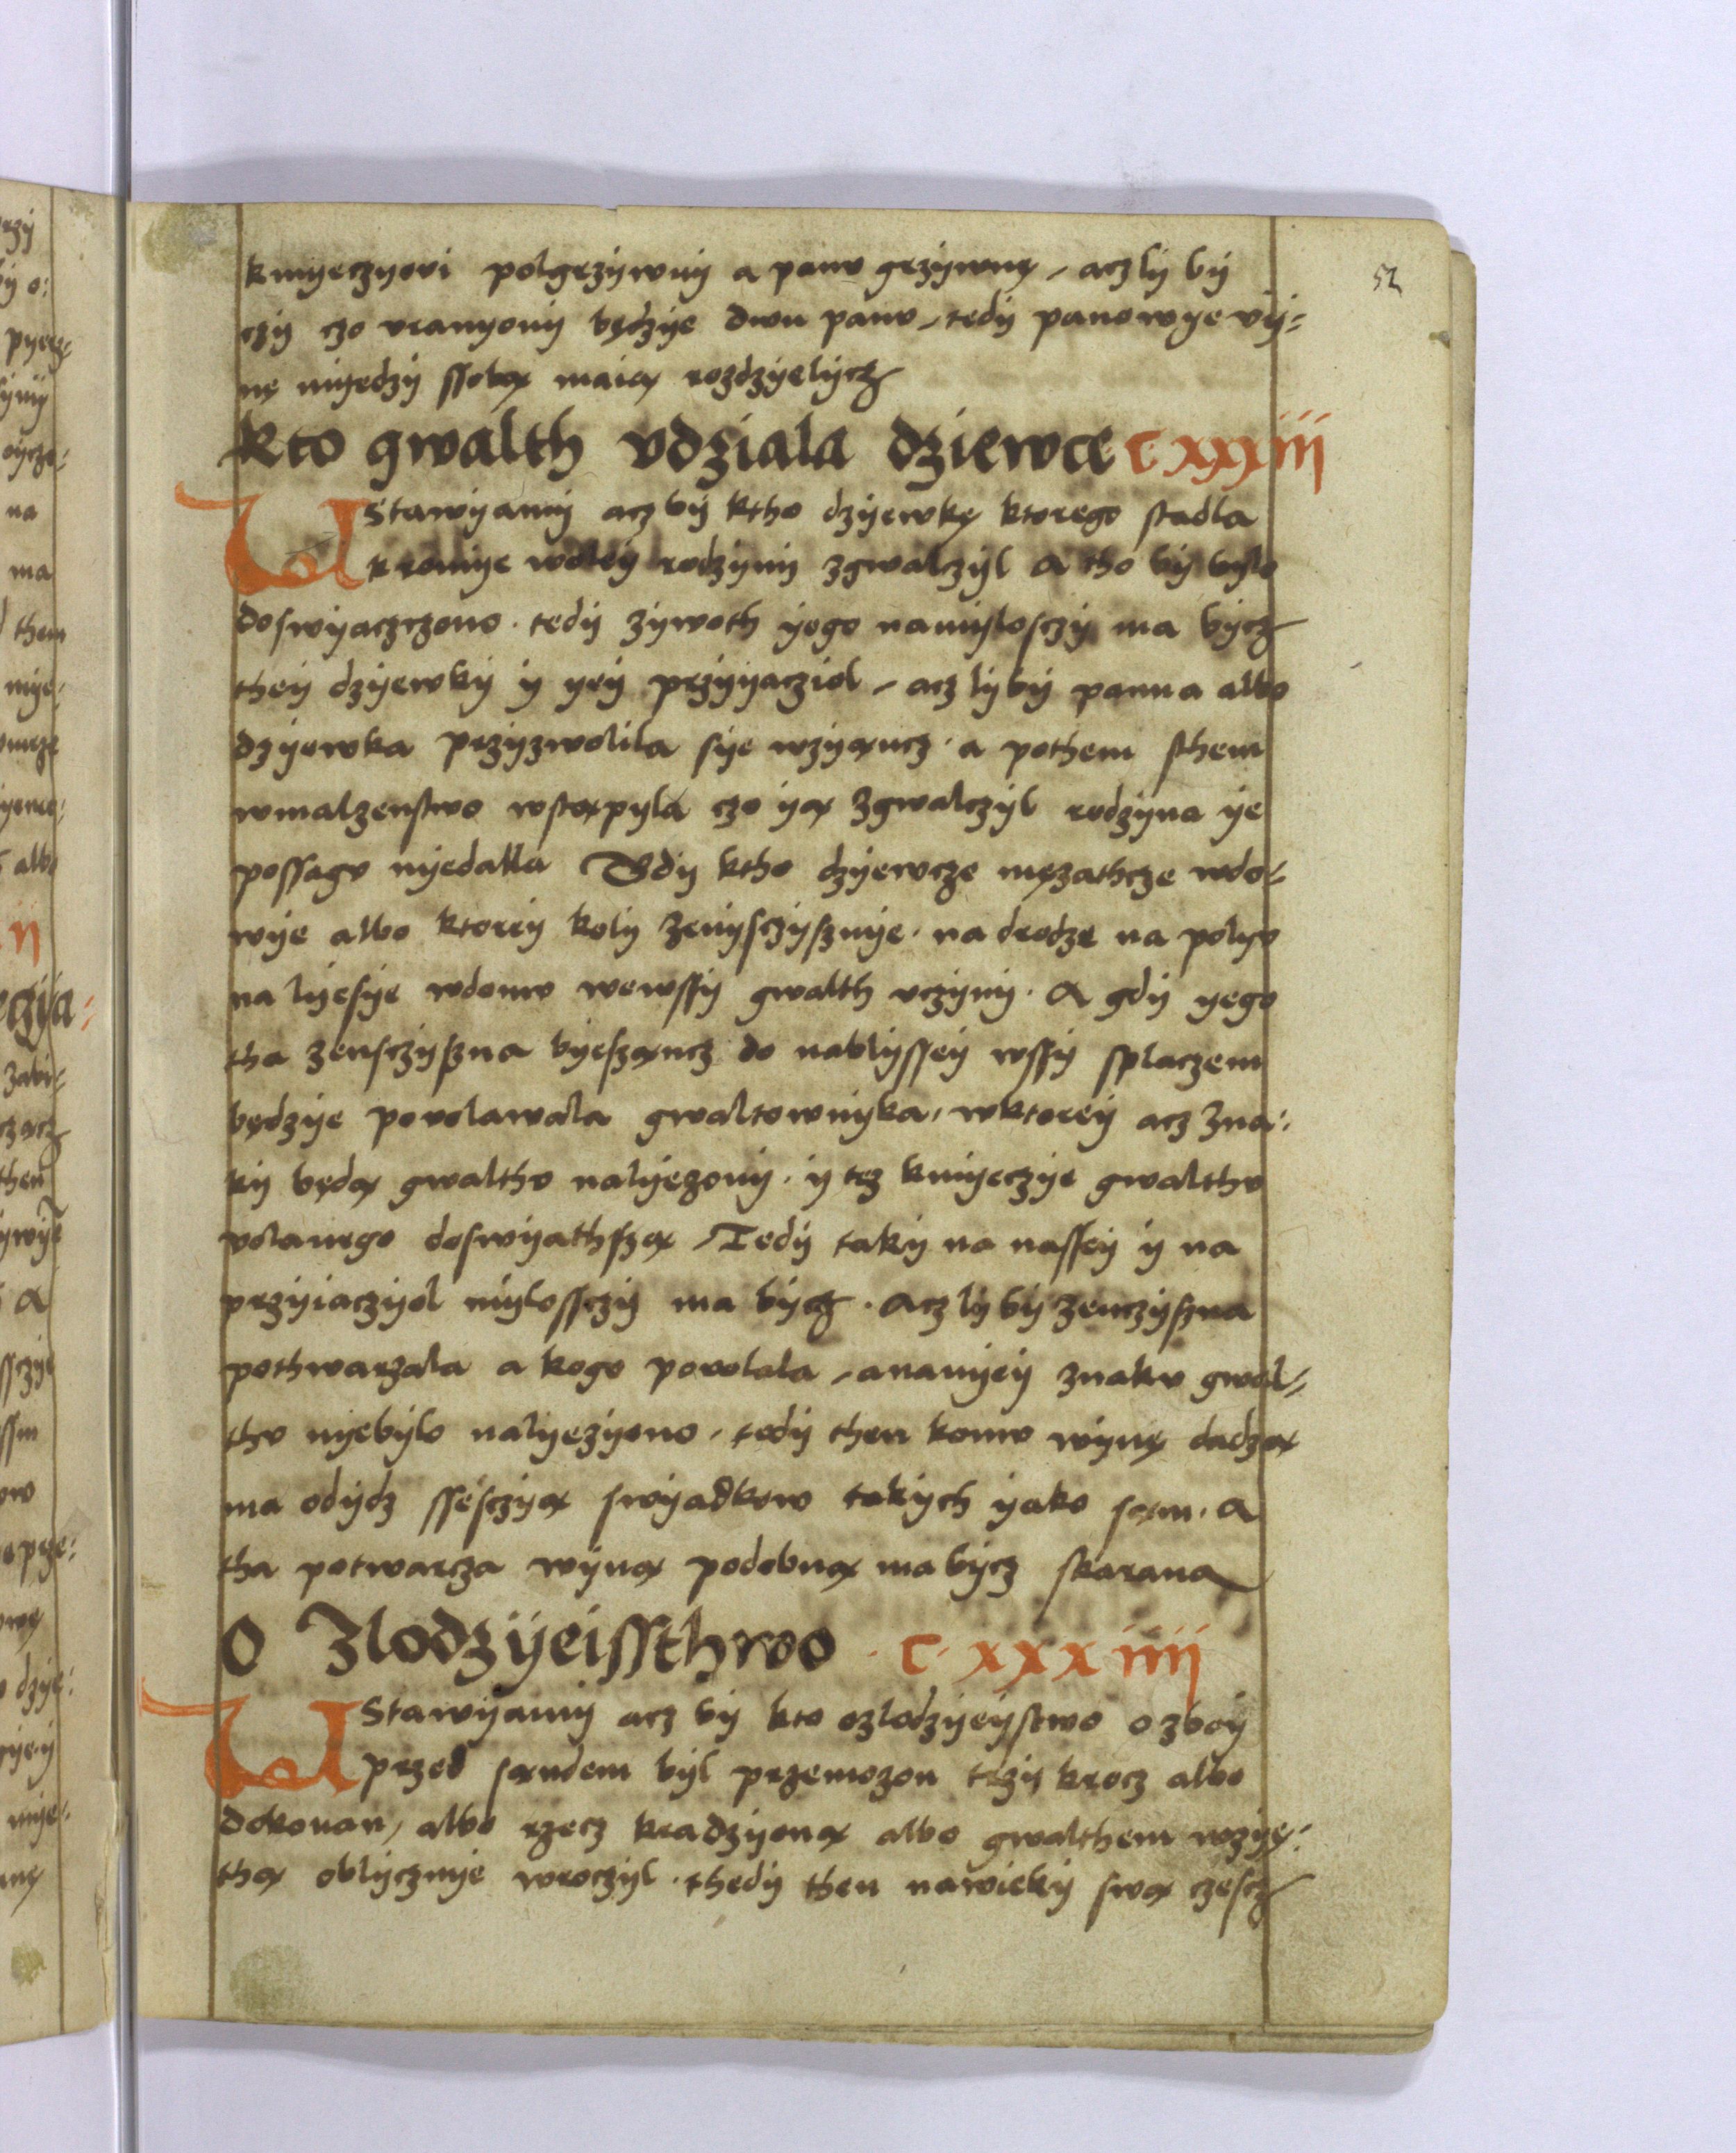 52
kmyeczyovi polgrzywny a panv grzywnę, aczly by
czy czo vranyony będzye dwu panv, tedy panowye vy=
nę myedzy ssobą maią rozdzyelycz
Kto gwalth vdziala dziewce C xxxiij
VStawyamy acz by ktho dzyewkę ktorego stadla
kromye woley rodzyny zgwalczyl a tho by bylo
doswyaczczono. tedy zywoth yego namyłosczy ma bycz
they dzyewky y yey przyyacziol, acz lyby panna albo
dzyewka przyzwolila sye wzyąncz. a pothem sthem
wmalzenstwo wstąpyla czo yą zgwalczyl rodzyna ye
possagv nyedalla Gdy ktho dzyewcze męzathcze wdo=
wye albo ktorey koly zenysczysznye. na drodze na polyv
na lyesye wdomv wewssy gwalth vczyny. A gdy yego
tha zensczyszna byeszącz do nablyssey wssy splaczem
będzye povolawala gwaltownyka, wktorey acz zna=
ky będą gwalthv nalyezony. y tez kmyeczye gwalthv
volanego doswyathszą, Tedy taky na nassey y na
przyiaczyol mylossczy ma bycz. Acz ly by zenczyszna
pothwarzala a kogo povolala, ananyey znakv gwal=
thv nyebylo nalyezyono, tedy then komv wynę dadzą
ma odydz ssesczyą swyadkow takych yako sąm. A
tha potwarcza wyną podobną ma bycz skarana
O Zlodzyeissthwo . C. xxx iiij
VStawyamy acz by kto ozlodzyeystwo o zboy
przed sąndem byl przemozon trzy krocz albo
dokonan, albo rzecz kradzyoną albo gwalthem wzyę=
thą oblycznye wroczyl. thedy then nawieky swą czescz